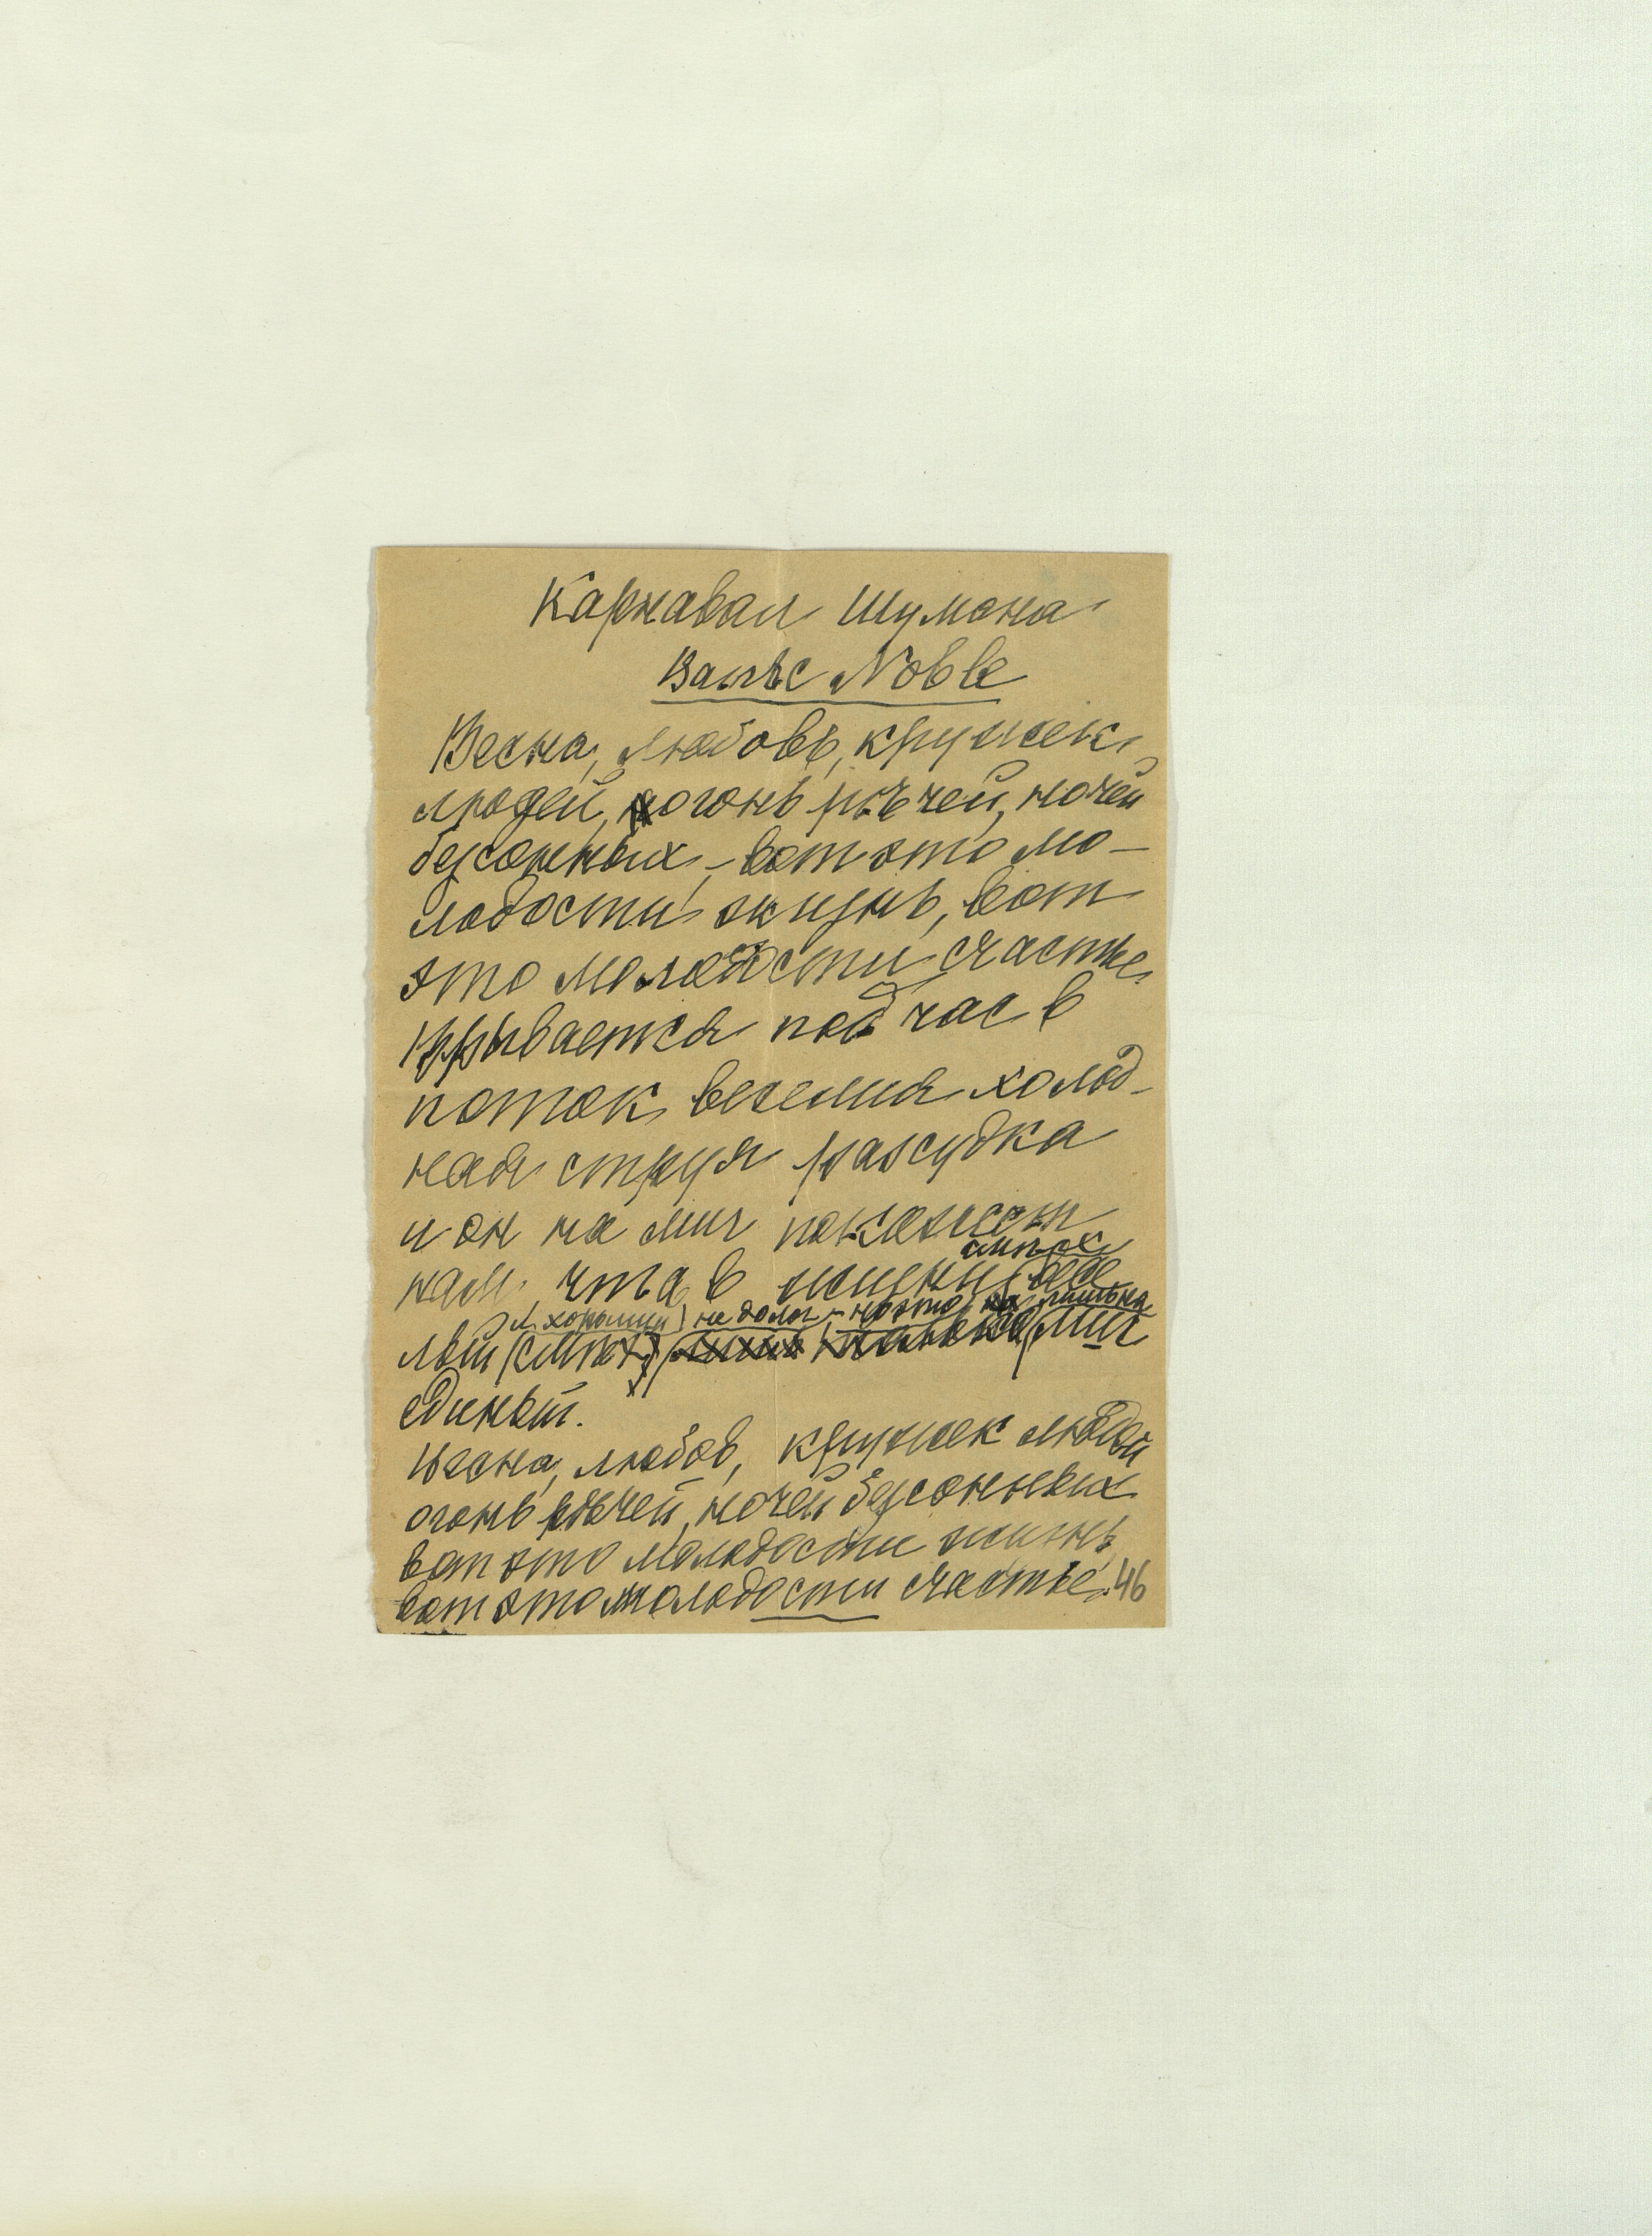 Карнавал Шумана
Вальс Noble
Весна, любовь, кружек
людей, огонь рѣчей, ночей
безсонных, – вот это мо-
лодости жизнь, вот
это молодости счастье
Врывается под час в
поток веселия холод-
ная струя разсудка
и он на миг покажет
нам, что в жизни
смѣх
не долог – но это лишь на
лый (смѣх) миг
единый.
Весна, любов, кружек людей
огонь рѣчей, ночей безсонных
вот это молодости жизнь
вот это молодости счастье. 46